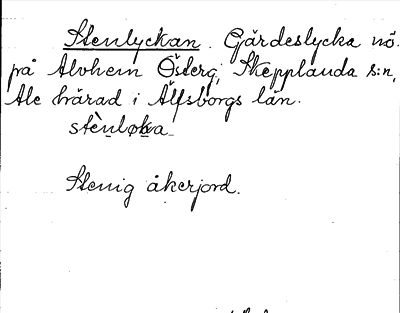 Stenlyckan. Gärdeslycka nö.
på Alvhem Österg, Skepplanda s:n,
Ale härad i Älfsborgs län.
Stenig åkerjord.